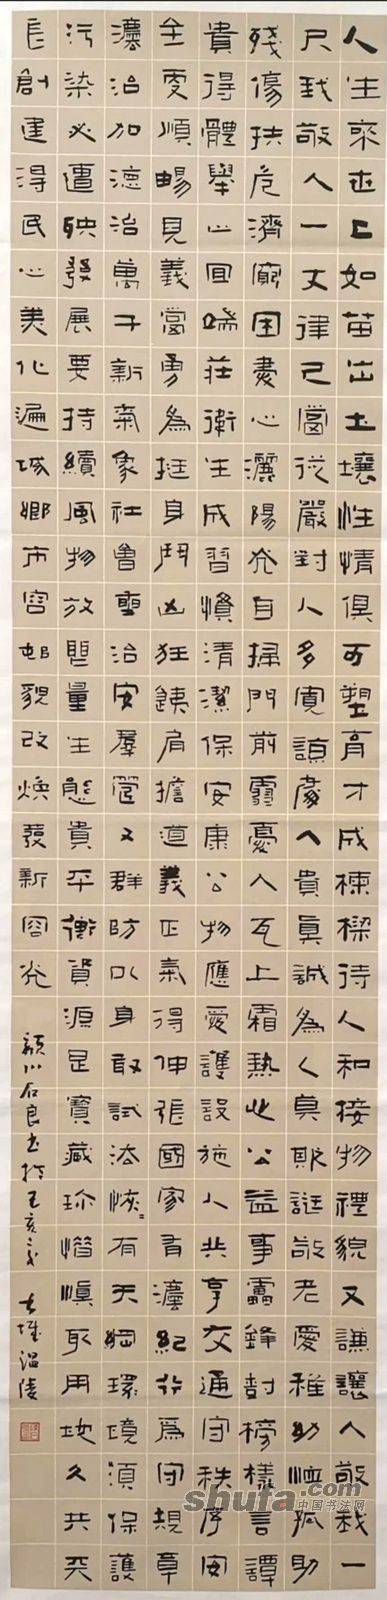 人生來世上如苗出土壤性情俱可塑育才成棟樑待人和接物禮貌又謙讓人敬我一
尺我敬人一丈律己當從嚴對人多寬諒處人貴真誠為人莫欺誑敬老愛稚幼恤孤助
殘傷扶危濟窮困愛心灑陽光自掃門前雪憂人瓦上霜熱心公益事雷鋒封榜樣言譚
貴得體舉止宜端莊衛生成習慣清潔保安康公物應愛護設施人共享交通守秩序安
全要順暢見義當勇為挺身鬥凶狂鐵肩擔道義正氣得伸張國家有灋紀行為守規章
灋治加德治萬千新氣象社會要治安群管又群防以身敢試法恢〻有天網環境須保護
污染必遭殃發展要持續風物放眼量生態貴平衡資源是寶藏珍惜慎取用地久共天
長創建得民心美化遍城鄉市容邨貌改煥發新容光
穎川石良書於己亥之歲 古城溫陵
shufa.com
中国书法网